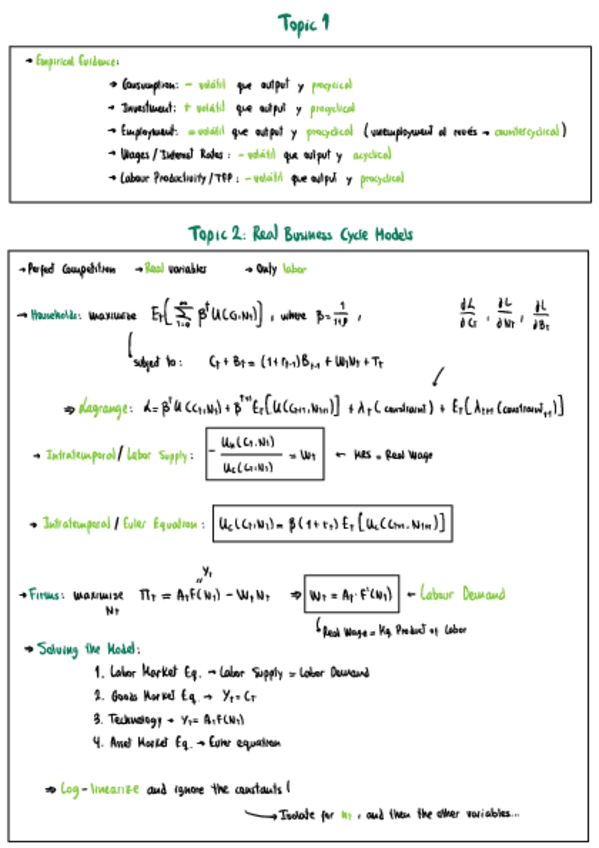 Topic 1
→ Empirical Evidence:
→ Consumption: - volátil que output y procyclical
→ Investment: + volátil que output y procyclical
→ Employment: = volátil que output y procyclical (unemployment al revés → countercyclical)
→ Wages / Interest Rates: - volátil que output y acyclical
→ Labour Productivity / TFP: - volátil que output y procyclical
Topic 2: Real Business Cycle Models
→ Perfect Competition → Real variables → Only labor
→ Households: maximize E_T[∑_{t=0}^∞ β^t U(C_t, N_t)], where β = 1/(1+ρ), ∂L/∂C_T, ∂L/∂N_T, ∂L/∂B_T
subject to: C_T + B_T = (1+r_{T-1})B_{T-1} + W_T N_T + T_T
⇒ Lagrange: L = β^T U(C_T, N_T) + β^{T+1} E_T[U(C_{T+1}, N_{T+1})] + λ_T (constraint) + E_T[λ_{T+1} (constraint_{T+1})]
→ Intratemporal / Labor Supply: - U_N(C_T, N_T) / U_C(C_T, N_T) = W_T ← MRS = Real Wage
→ Intratemporal / Euler Equation: U_C(C_T, N_T) = β(1+r_T) E_T[U_C(C_{T+1}, N_{T+1})]
Y_T
→ Firms: maximize Π_T = A_T F(N_T) - W_T N_T ⇒ W_T = A_T · F'(N_T) ← Labour Demand
N_T
Real Wage = Mg. Product of Labor
→ Solving the Model:
1. Labor Market Eq. → Labor Supply = Labor Demand
2. Goods Market Eq. → Y_T = C_T
3. Technology → Y_T = A_T F(N_T)
4. Asset Market Eq. → Euler equation
⇒ Log-linearize and ignore the constants!
→ Isolate for n_T, and then the other variables...